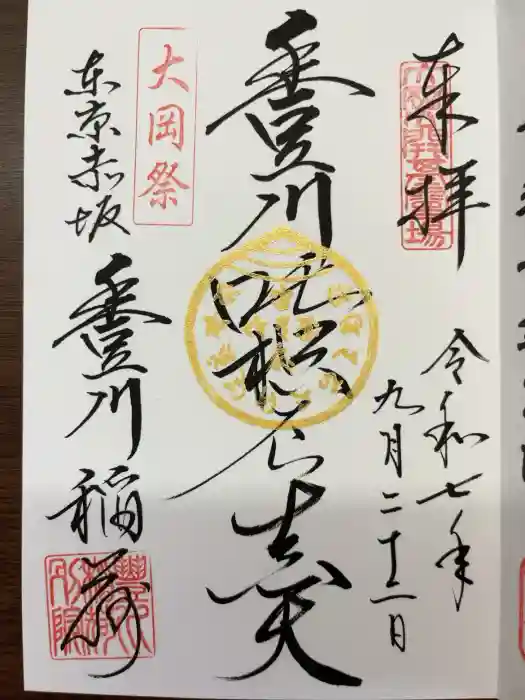 奉拝
令和七年
九月二十二日
豊川吒枳尼真天
大岡祭
東京赤坂
豊川稲荷